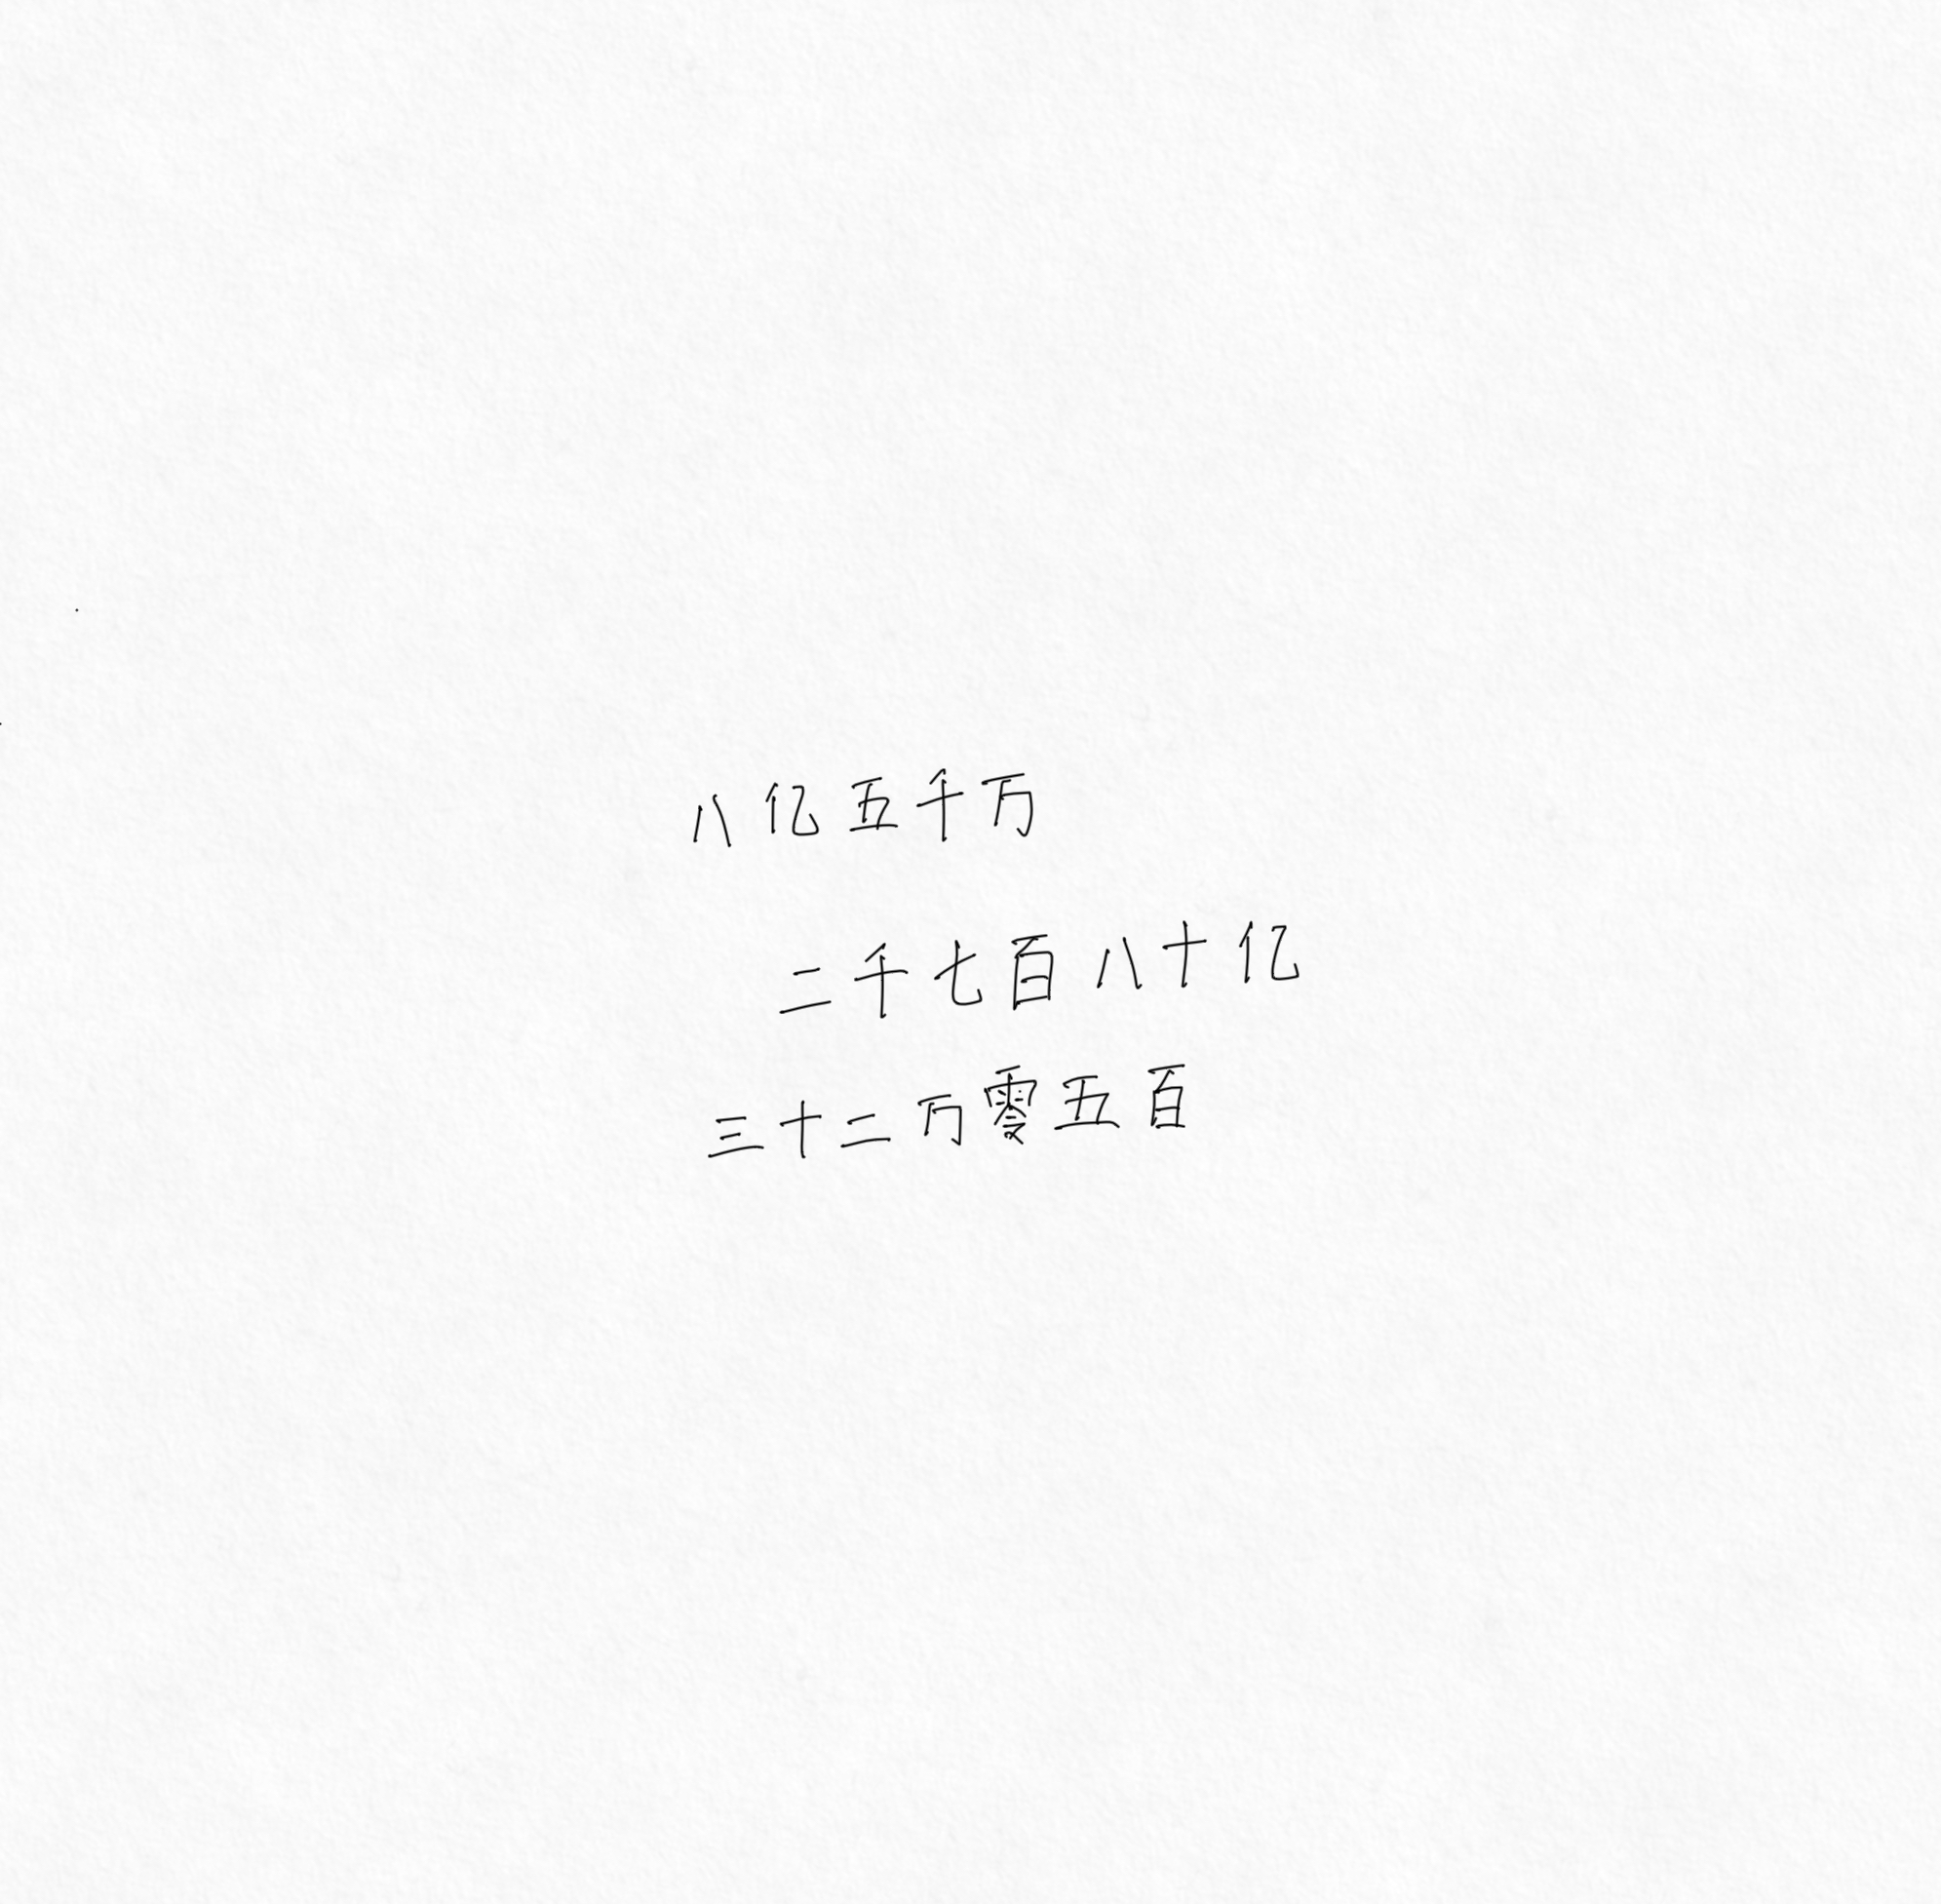 八亿五千万
二千七百八十亿
三十二万零五百